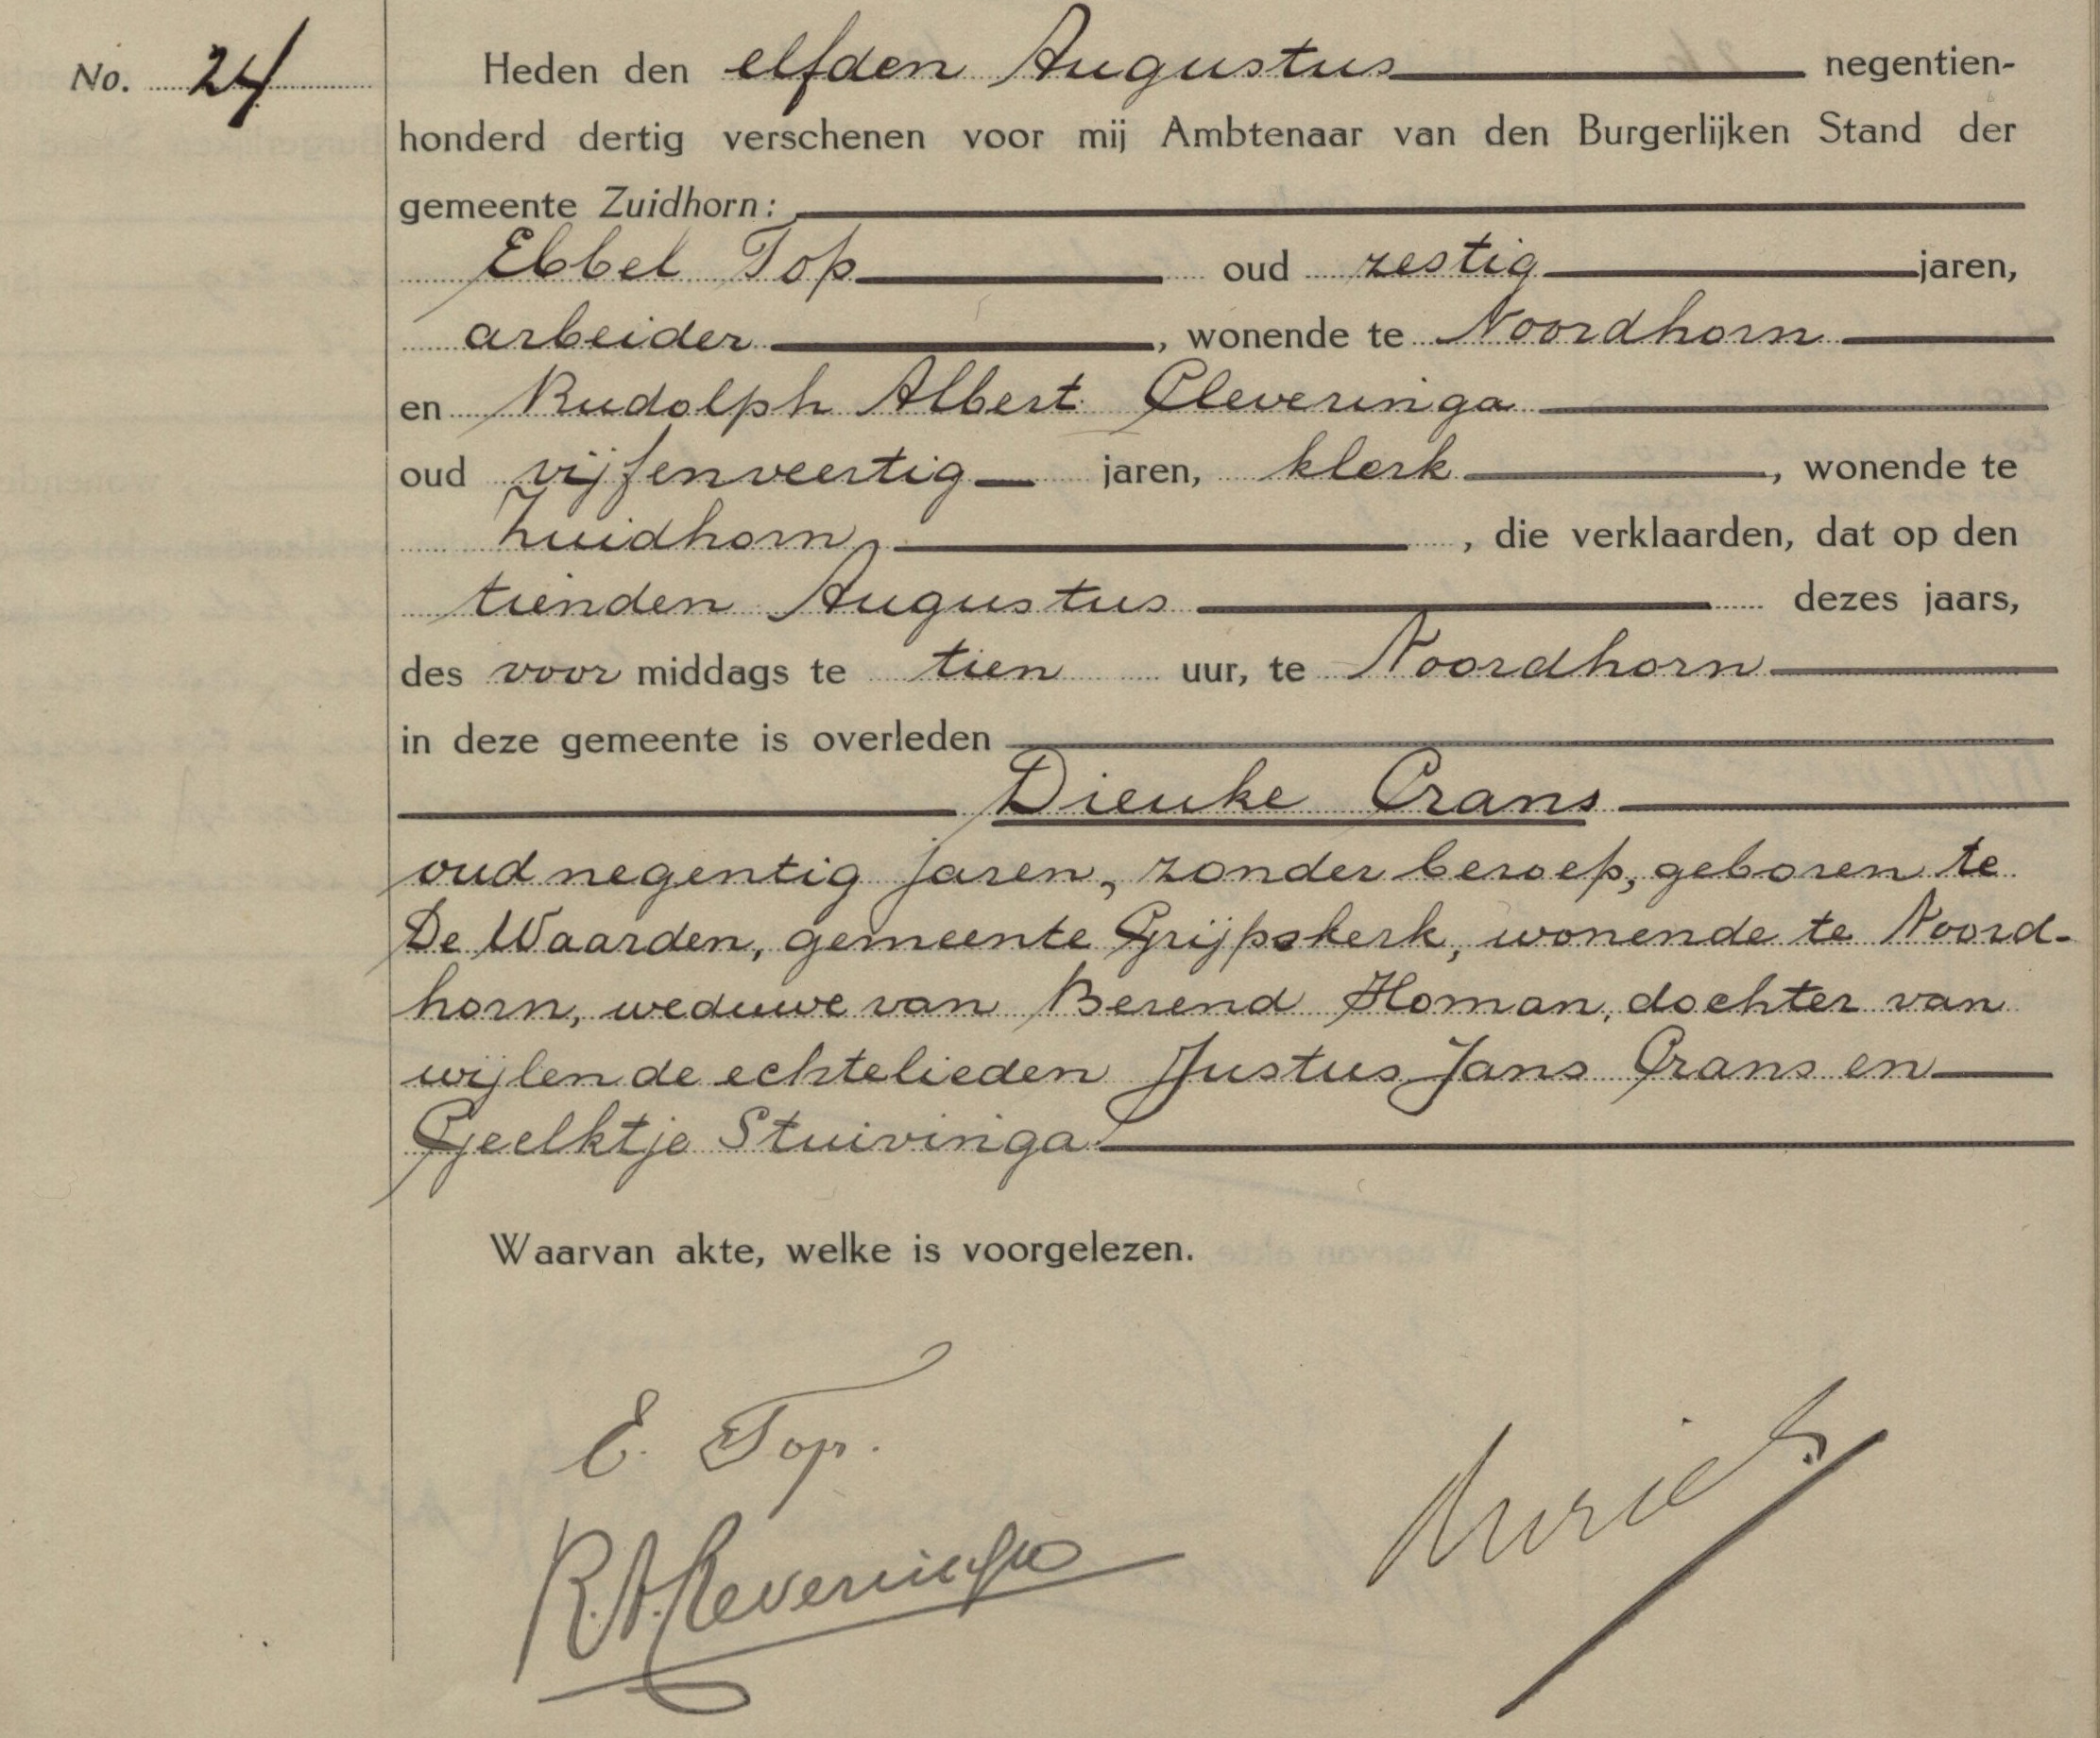 No. 24
Heden den elfden Augustus negentien-
honderd dertig verschenen voor mij Ambtenaar van den Burgerlijken Stand der
gemeente Zuidhorn:
Ebbel Top oud zestig jaren,
arbeider, wonende te Noordhorn
en Rudolph Albert Cleveringa
oud vijfenveertig jaren, klerk, wonende te
Zuidhorn, die verklaarden, dat op den
tienden Augustus dezes jaars,
des voor middags te tien uur, te Noordhorn
in deze gemeente is overleden
Dieuke Crans
oud negentig jaren, zonder beroep, geboren te
De Waarden, gemeente Grijpskerk, wonende te Noord-
horn, weduwe van Berend Homan, dochter van
wijlen de echtelieden Justus Jans Crans en
Geelktje Stuivinga.
Waarvan akte, welke is voorgelezen.
E. Top.
R.A. Cleveringa